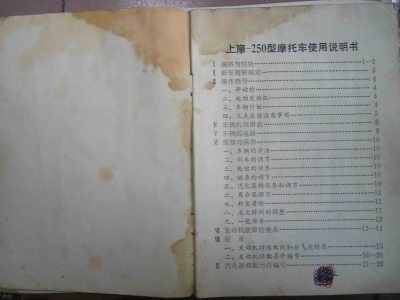 上摩-250型摩托车使用说明书
Ⅰ 规格与性能 1—2
Ⅱ 新车驾驶规定 3
Ⅲ 操作指导 4
一、开动前 4
二、起动发动机 4
三、车辆行驶 4
四、几点应注意事项 5
Ⅳ 车辆的润滑表 6
Ⅴ 车辆的电路 9
Ⅵ 维修与保养 10
一、车辆的清洁 10
二、刹车的调节 10
三、轮胎的保养 10
四、链条的调节 10
五、汽化器的保养和调节 10
六、离合器调节 11
七、积炭清除 11
八、点火时间的调整 11
九、一般保养 12
Ⅶ 发动机故障检查表 13—14
Ⅷ 附录
一、发动机特性曲线和分气定时图 15
二、发动机修配另件编号 16—21
汽化器修配另件编号 21—23